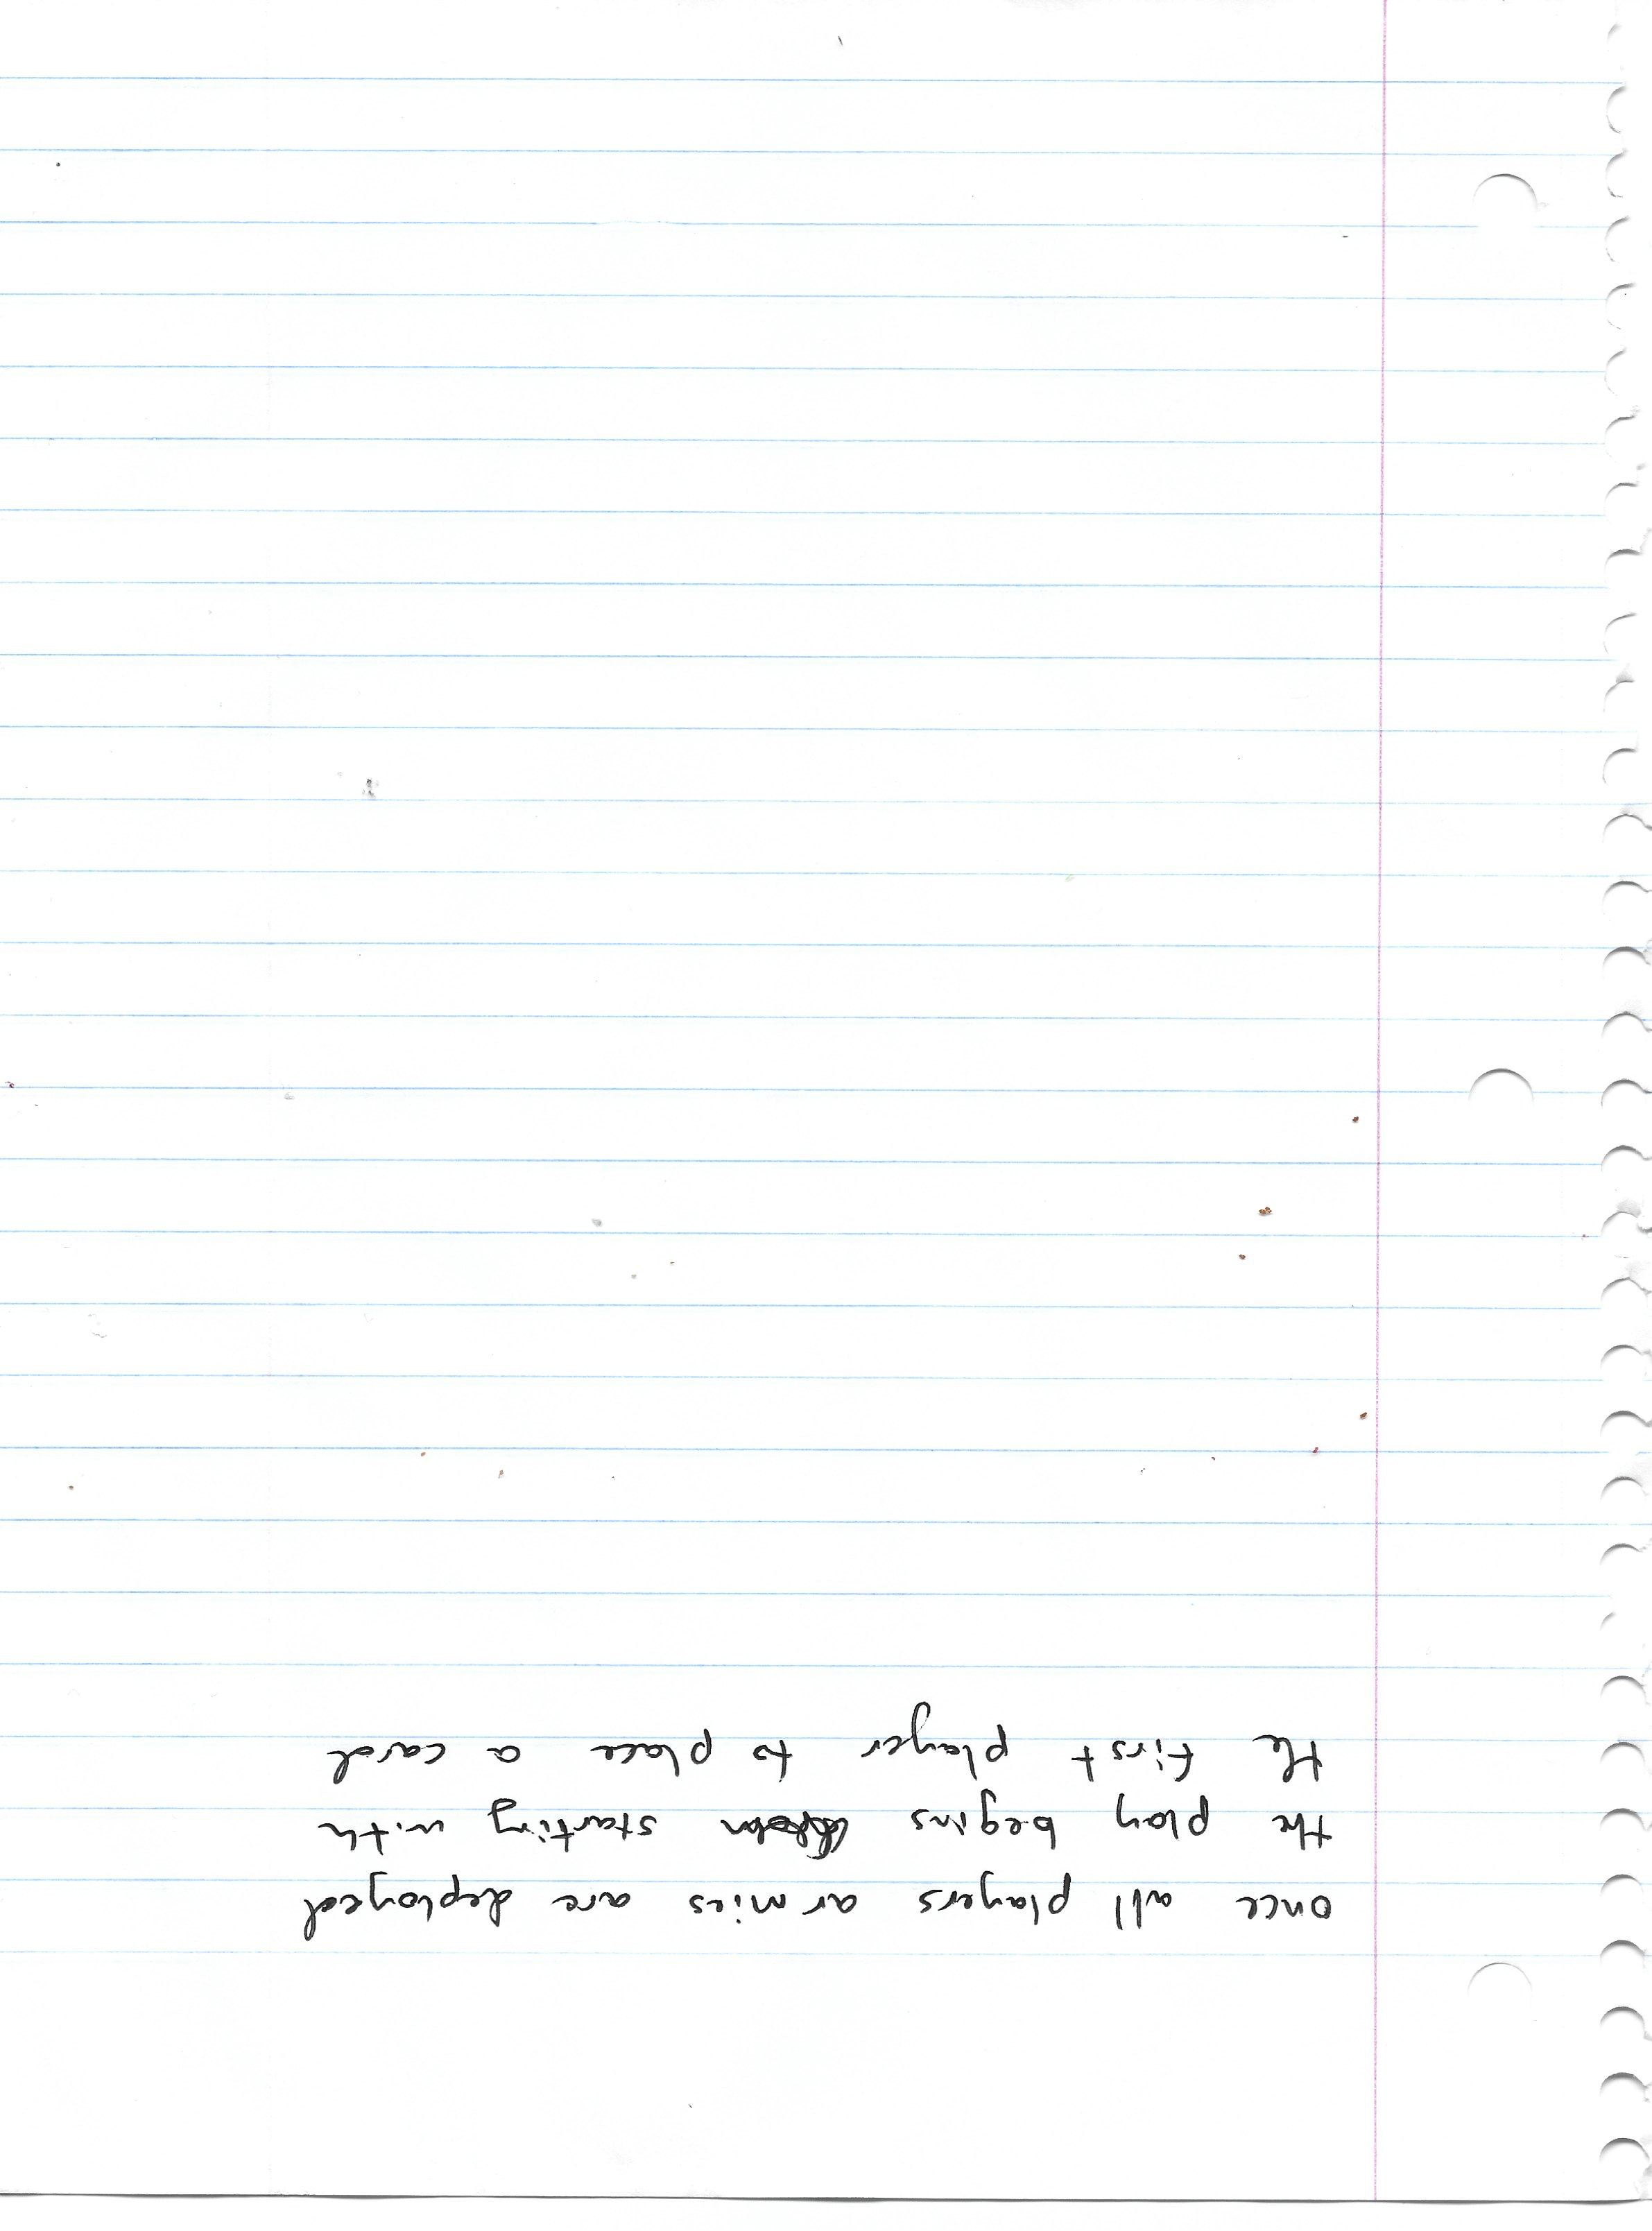 once all players armies are deployed
the play begins starting with
the first player to place a card